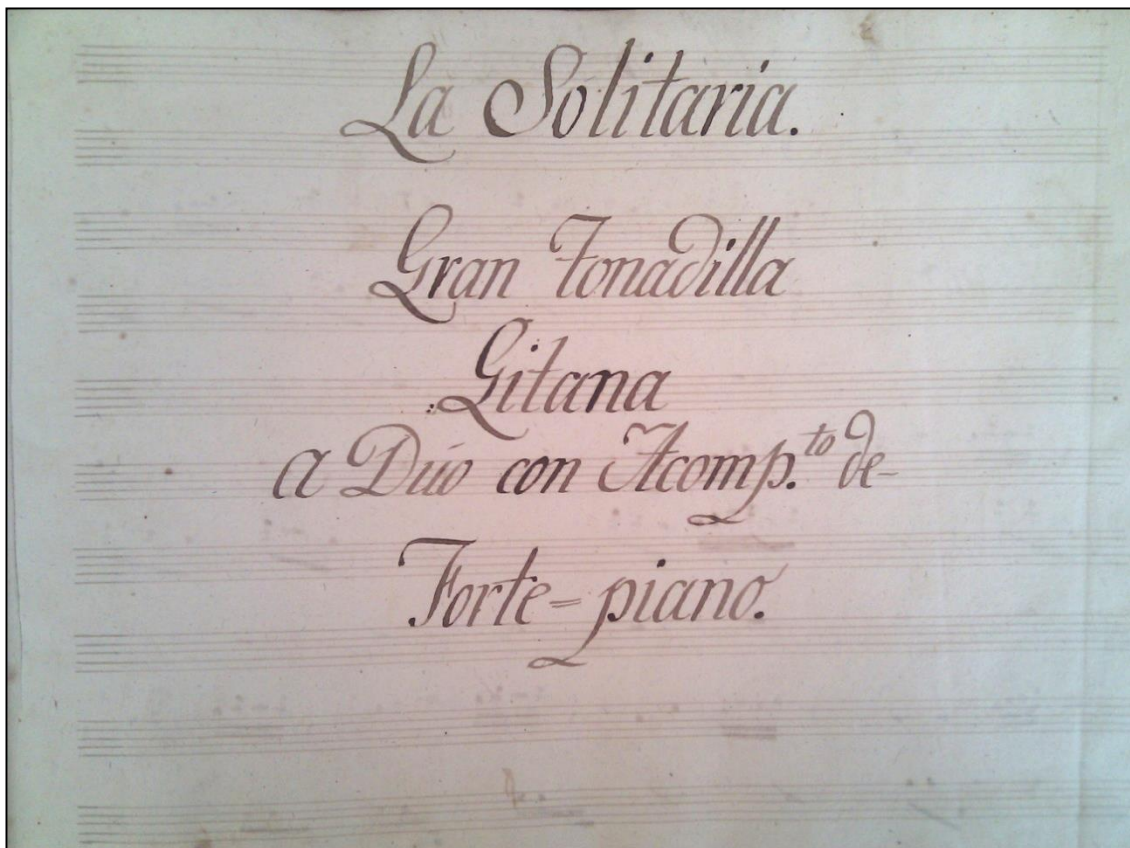 La Solitaria.
Gran Tonadilla
Gitana
a Dúo con Acomp.to de-
Forte=piano.